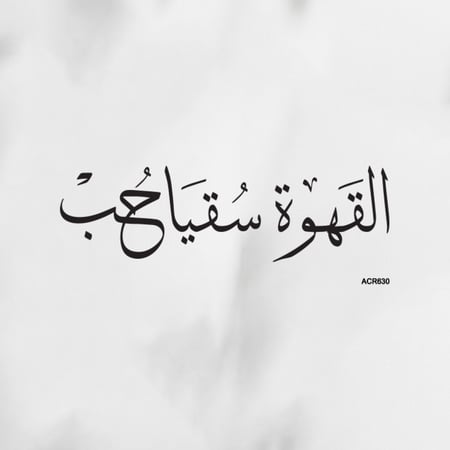 القَهْوة سُقيَا حُبْ
ACR630